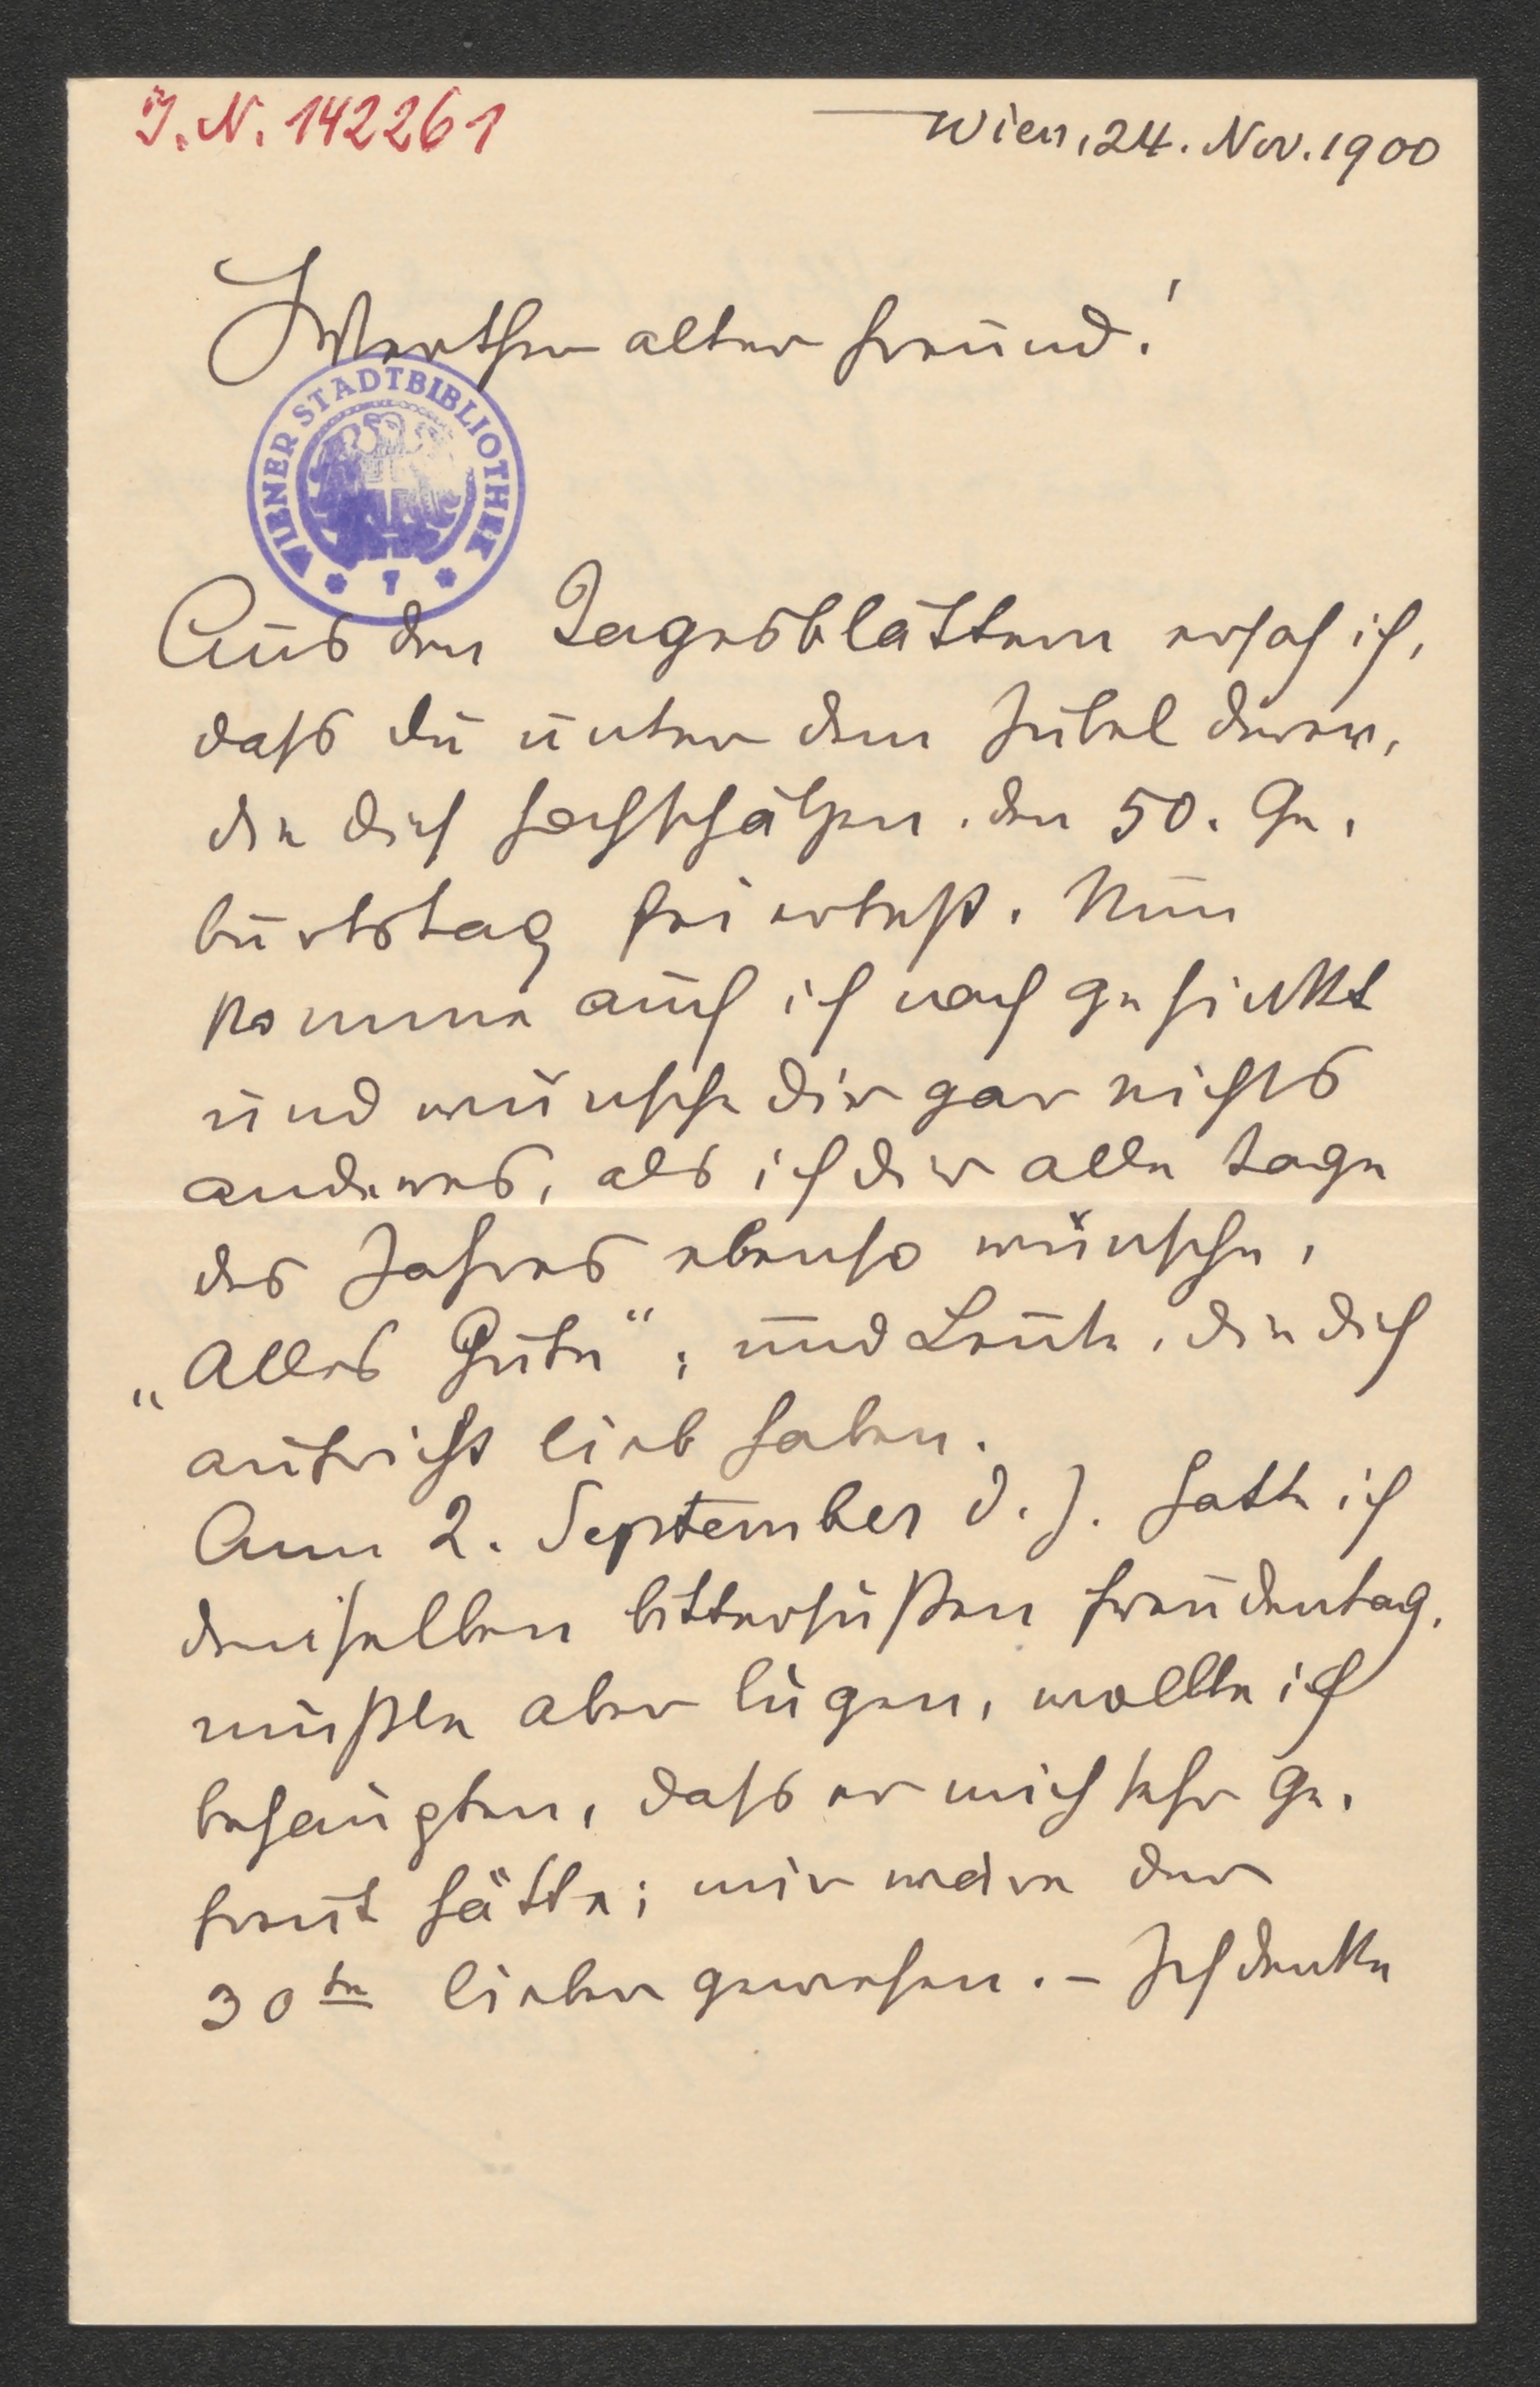 J. N. 142261
Wien, 24. Nov. 1900
Werther alter Freund!
WIENER STADTBIBLIOTHEK
Aus den Tagesblättern ersah ich,
daß du unter dem Jubel derer,
die dich hochschätzen, den 50. Ge-
burtstag feiertest. Nun
komme auch ich nach gehinkt
und wünsche dir gar nichts
anderes, als ich dir alle Tage
des Jahres ebenso wünsche,
„Alles Gute“; und Leute, die dich
aufricht lieb haben.
Am 2. September d. J. hatte ich
denselben bittersüßen Freudentag,
müßte aber lügen, wollte ich
behaupten, daß er mich sehr ge-
freut hätte; mir wäre der
30te lieber gewesen. – Ich denke